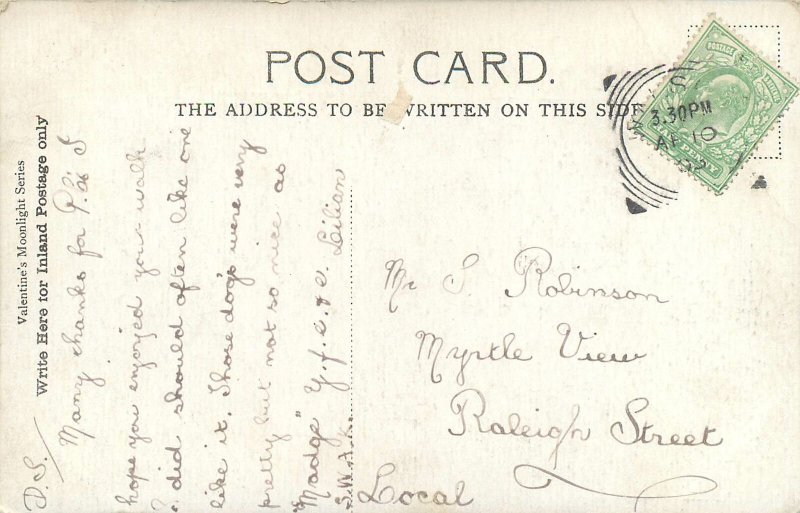 POST CARD.
THE ADDRESS TO BE WRITTEN ON THIS SIDE
3.30PM
AP 10
Valentine's Moonlight Series
Write Here for Inland Postage only
D.S.
Many thanks for P.C. I
hope you enjoyed your walk
I did should often like one
like it. Those dogs were very
pretty but not so nice as
"Madge" Y.f.e. & e. Lilian
S.W.A.K.
Mr S. Robinson
Myrtle View
Raleigh Street
Local